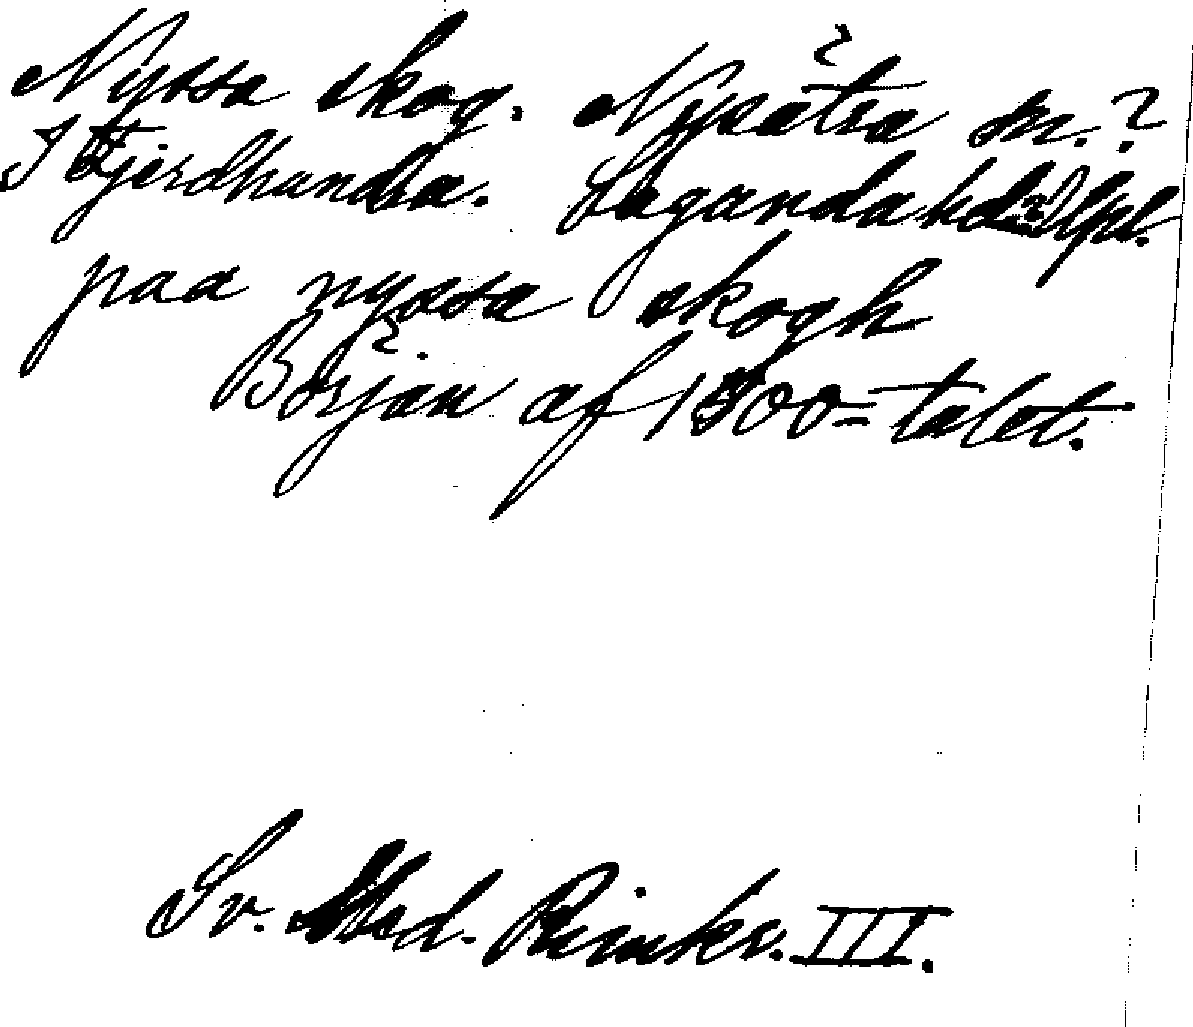 Nyssa skog. Nysätra sn.?
I Fjerdhundra. Lagunda hd? Upl.
paa nyssa skogh
Början af 1500-talet.
Sv. Med. Rimkr. III.